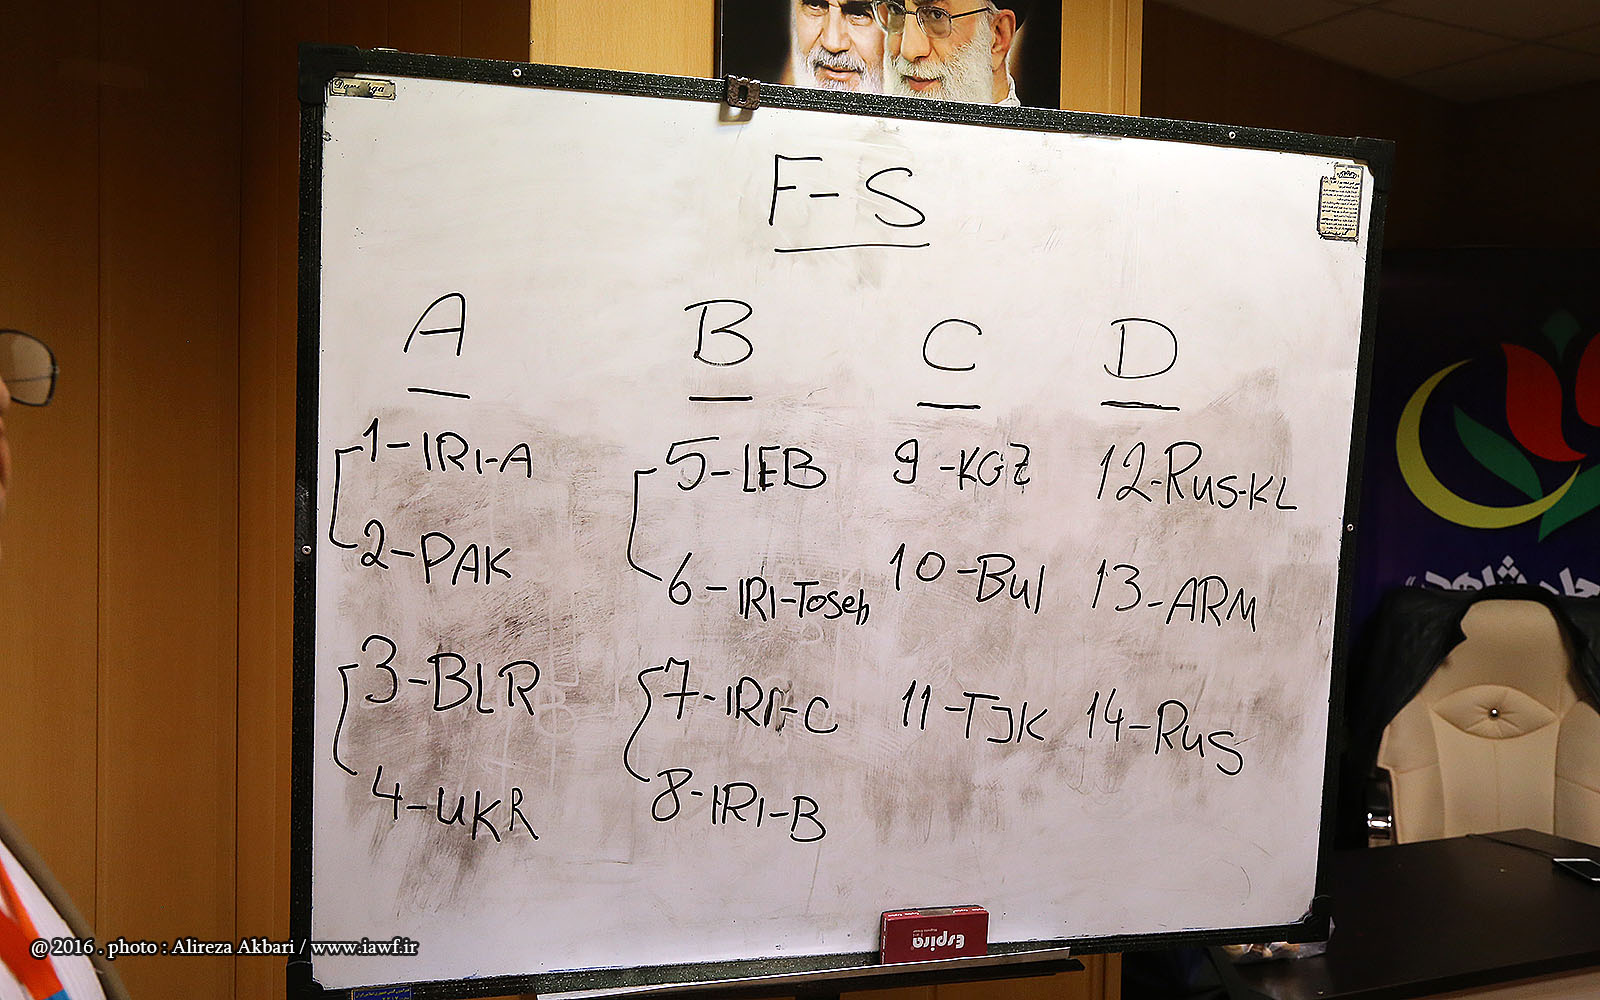 F-S
A
B
C
D
1-IRI-A
2-PAK
3-BLR
4-UKR
5-LEB
6-IRI-Toseh
7-IRI-C
8-IRI-B
9-KGZ
10-Bul
11-TJK
12-Rus-KL
13-ARM
14-Rus
Espira
@ 2016 . photo : Alireza Akbari / www.iawf.ir